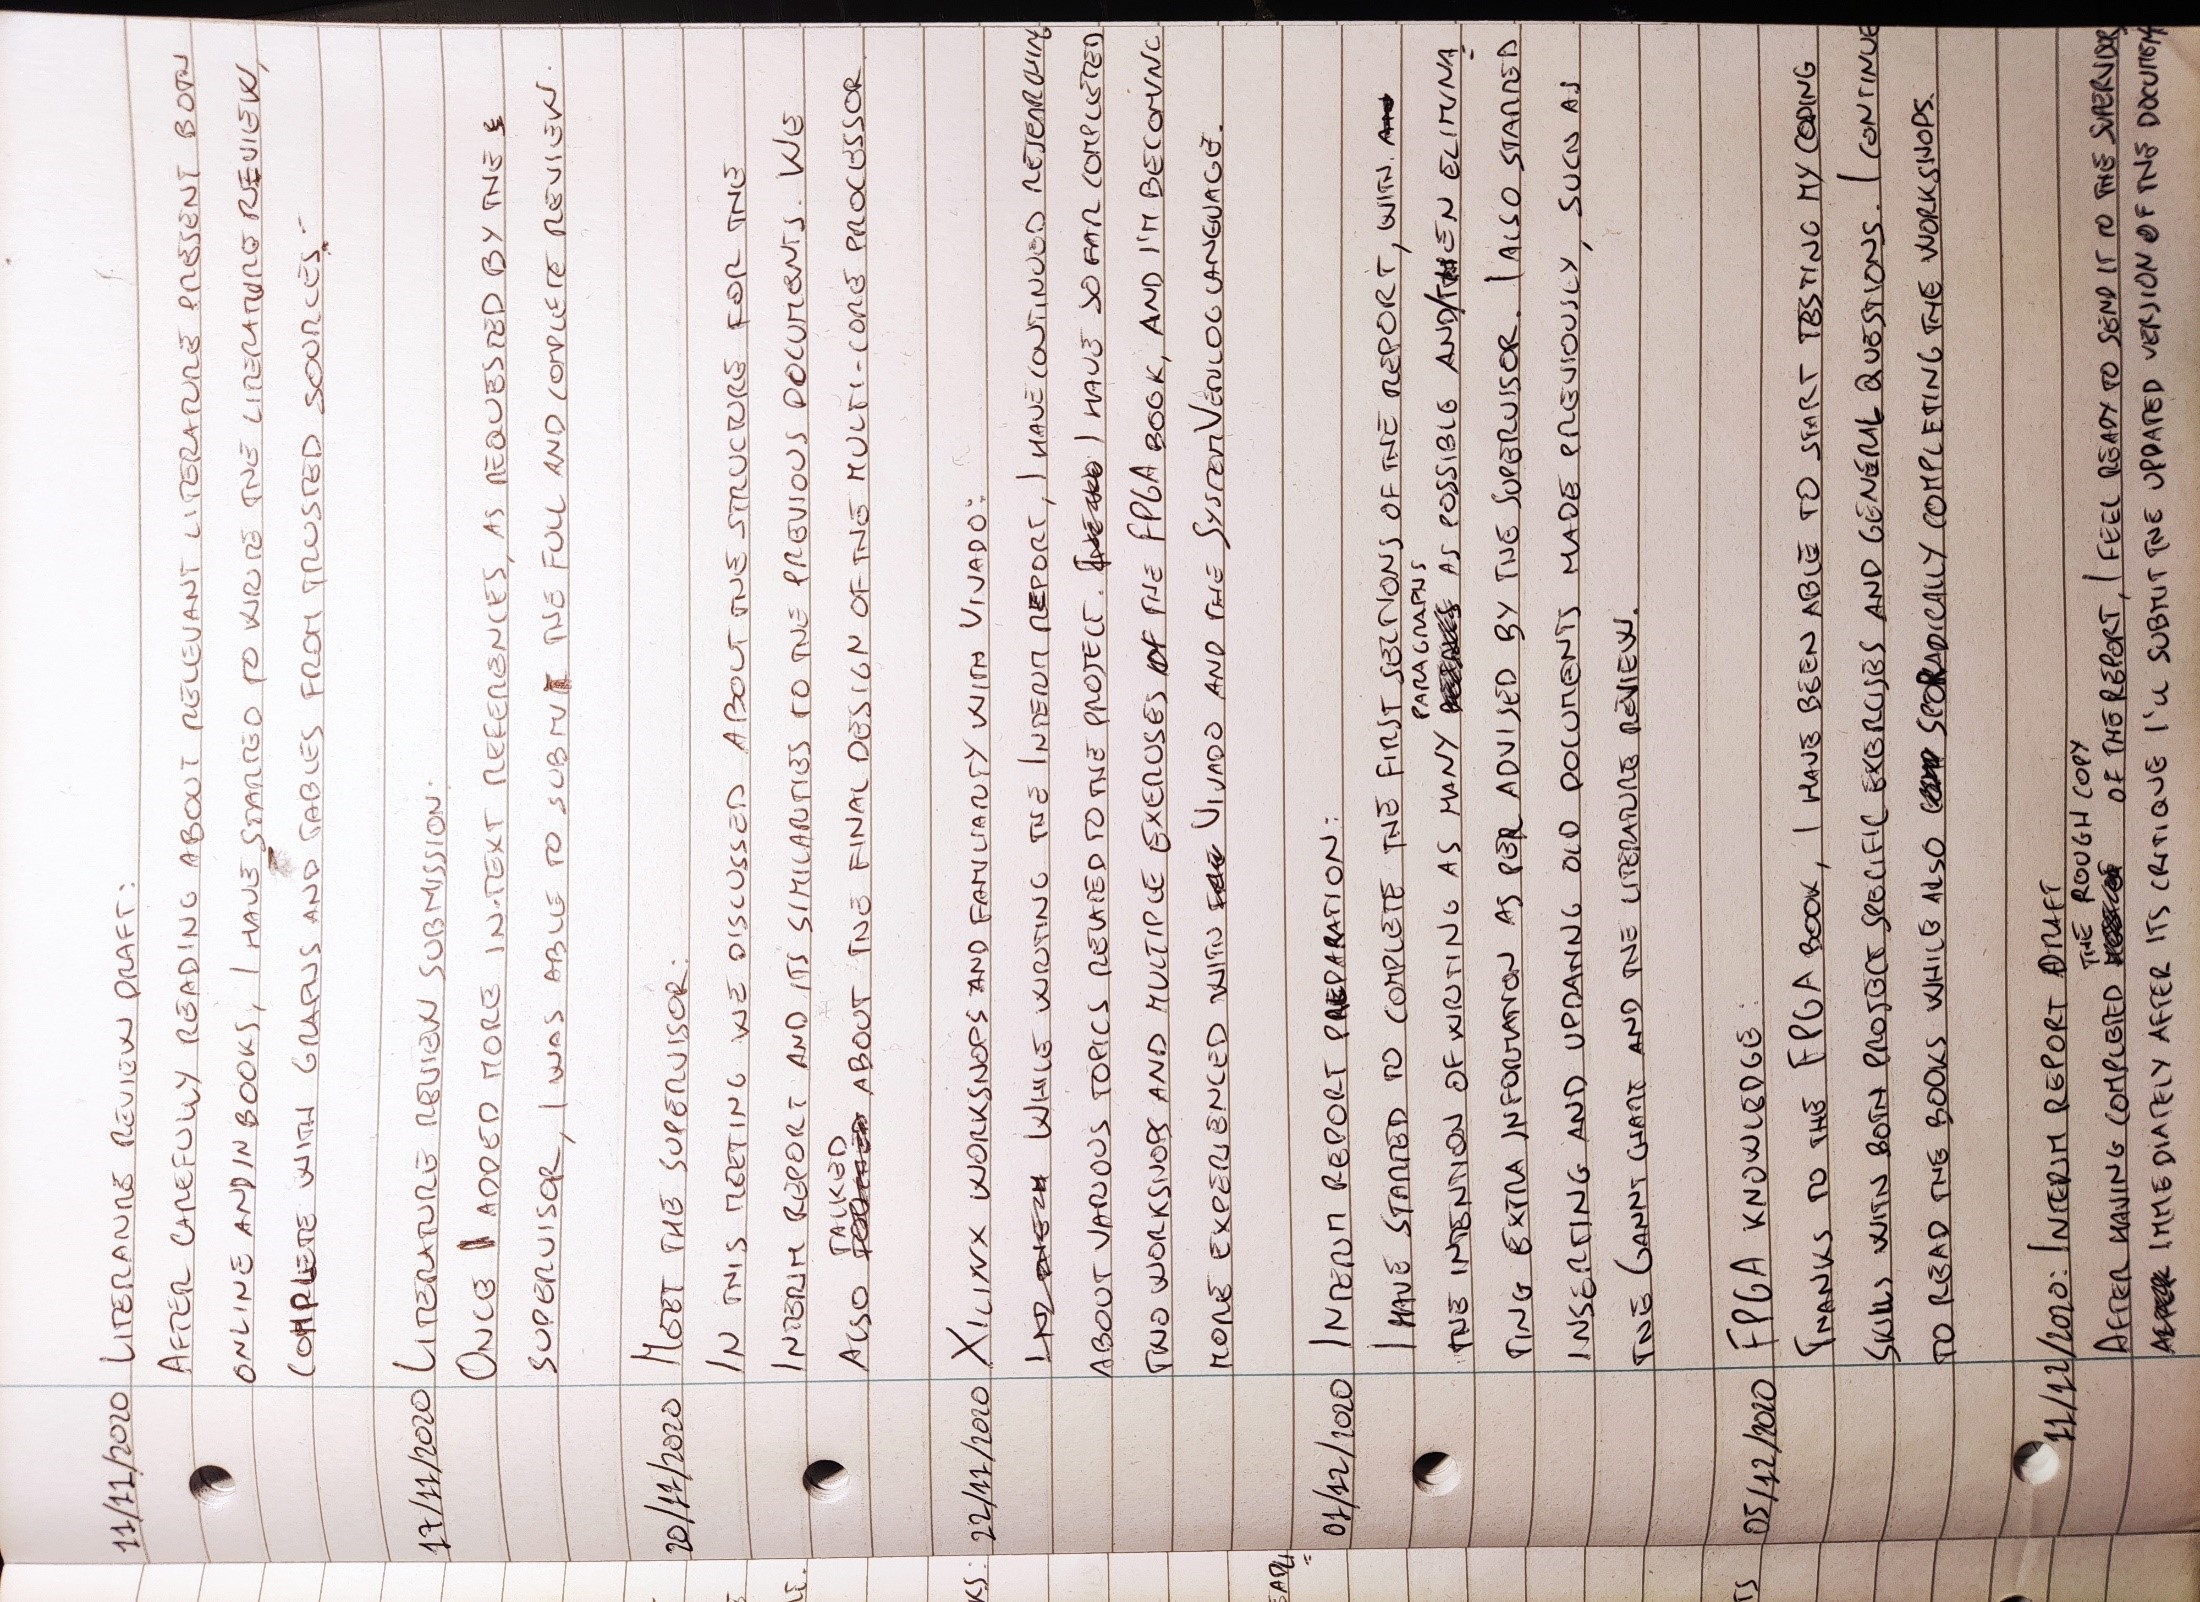 11/11/2020 LITERATURE REVIEW DRAFT:
AFTER CAREFULLY READING ABOUT RELEVANT LITERATURE PRESENT BOTH
ONLINE AND IN BOOKS, I HAVE STARTED TO WRITE THE LITERATURE REVIEW,
COMPLETE WITH GRAPHS AND TABLES FROM TRUSTED SOURCES.
17/11/2020 LITERATURE REVIEW SUBMISSION:
ONCE I ADDED MORE IN-TEXT REFERENCES, AS REQUESTED BY THE
SUPERVISOR, I WAS ABLE TO SUBMIT THE FULL AND COMPLETE REVIEW.
20/11/2020 MEET THE SUPERVISOR:
IN THIS MEETING WE DISCUSSED ABOUT THE STRUCTURE FOR THE
INTERIM REPORT AND ITS SIMILARITIES TO THE PREVIOUS DOCUMENTS. WE
ALSO TALKED ABOUT THE FINAL DESIGN OF THE MULTI-CORE PROCESSOR
KS: 22/11/2020 XILINX WORKSHOPS AND FAMILIARITY WITH VIVADO:
WHILE WRITING THE INTERIM REPORT, I HAVE CONTINUED RESEARCHING
ABOUT VARIOUS TOPICS RELATED TO THE PROJECT. I HAVE SO FAR COMPLETED
TWO WORKSHOPS AND MULTIPLE EXERCISES OF THE FPGA BOOK, AND I'M BECOMING
MORE EXPERIENCED WITH VIVADO AND THE SYSTEMVERILOG LANGUAGE.
01/12/2020 INTERIM REPORT PREPARATION:
I HAVE STARTED TO COMPLETE THE FIRST SECTIONS OF THE REPORT, WITH
THE INTENTION OF WRITING AS MANY PARAGRAPHS AS POSSIBLE AND/THEN ELIMINA
TING EXTRA INFORMATION AS PER ADVISED BY THE SUPERVISOR. I ALSO STARTED
INSERTING AND UPDATING OLD DOCUMENTS MADE PREVIOUSLY, SUCH AS
THE GANNT CHART AND THE LITERATURE REVIEW.
TS 05/12/2020 FPGA KNOWLEDGE:
THANKS TO THE FPGA BOOK, I HAVE BEEN ABLE TO START TESTING MY CODING
SKILLS WITH BOTH PROJECT SPECIFIC EXERCISES AND GENERAL QUESTIONS. I CONTINUE
TO READ THE BOOKS WHILE ALSO SPORADICALLY COMPLETING THE WORKSHOPS.
11/12/2020: INTERIM REPORT DRAFT
AFTER HAVING COMPLETED THE ROUGH COPY OF THE REPORT, I FEEL READY TO SEND IT TO THE SUPERVISOR,
IMMEDIATELY AFTER ITS CRITIQUE I'LL SUBMIT THE UPDATED VERSION OF THE DOCUMENT